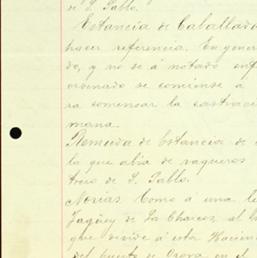 de S. Pablo.
Estancia de Caballada
hacer referencia. En gener
do, y no sé á notado enf
ordinado se comience á
ra comensar la castrac
mana.
Remuda de Estancia de
la que abia de vaqueros
trero de S. Pablo.
Norias. Como a una le
Jagüey de La Charcos, al
que divide á esta Hacien
del punto